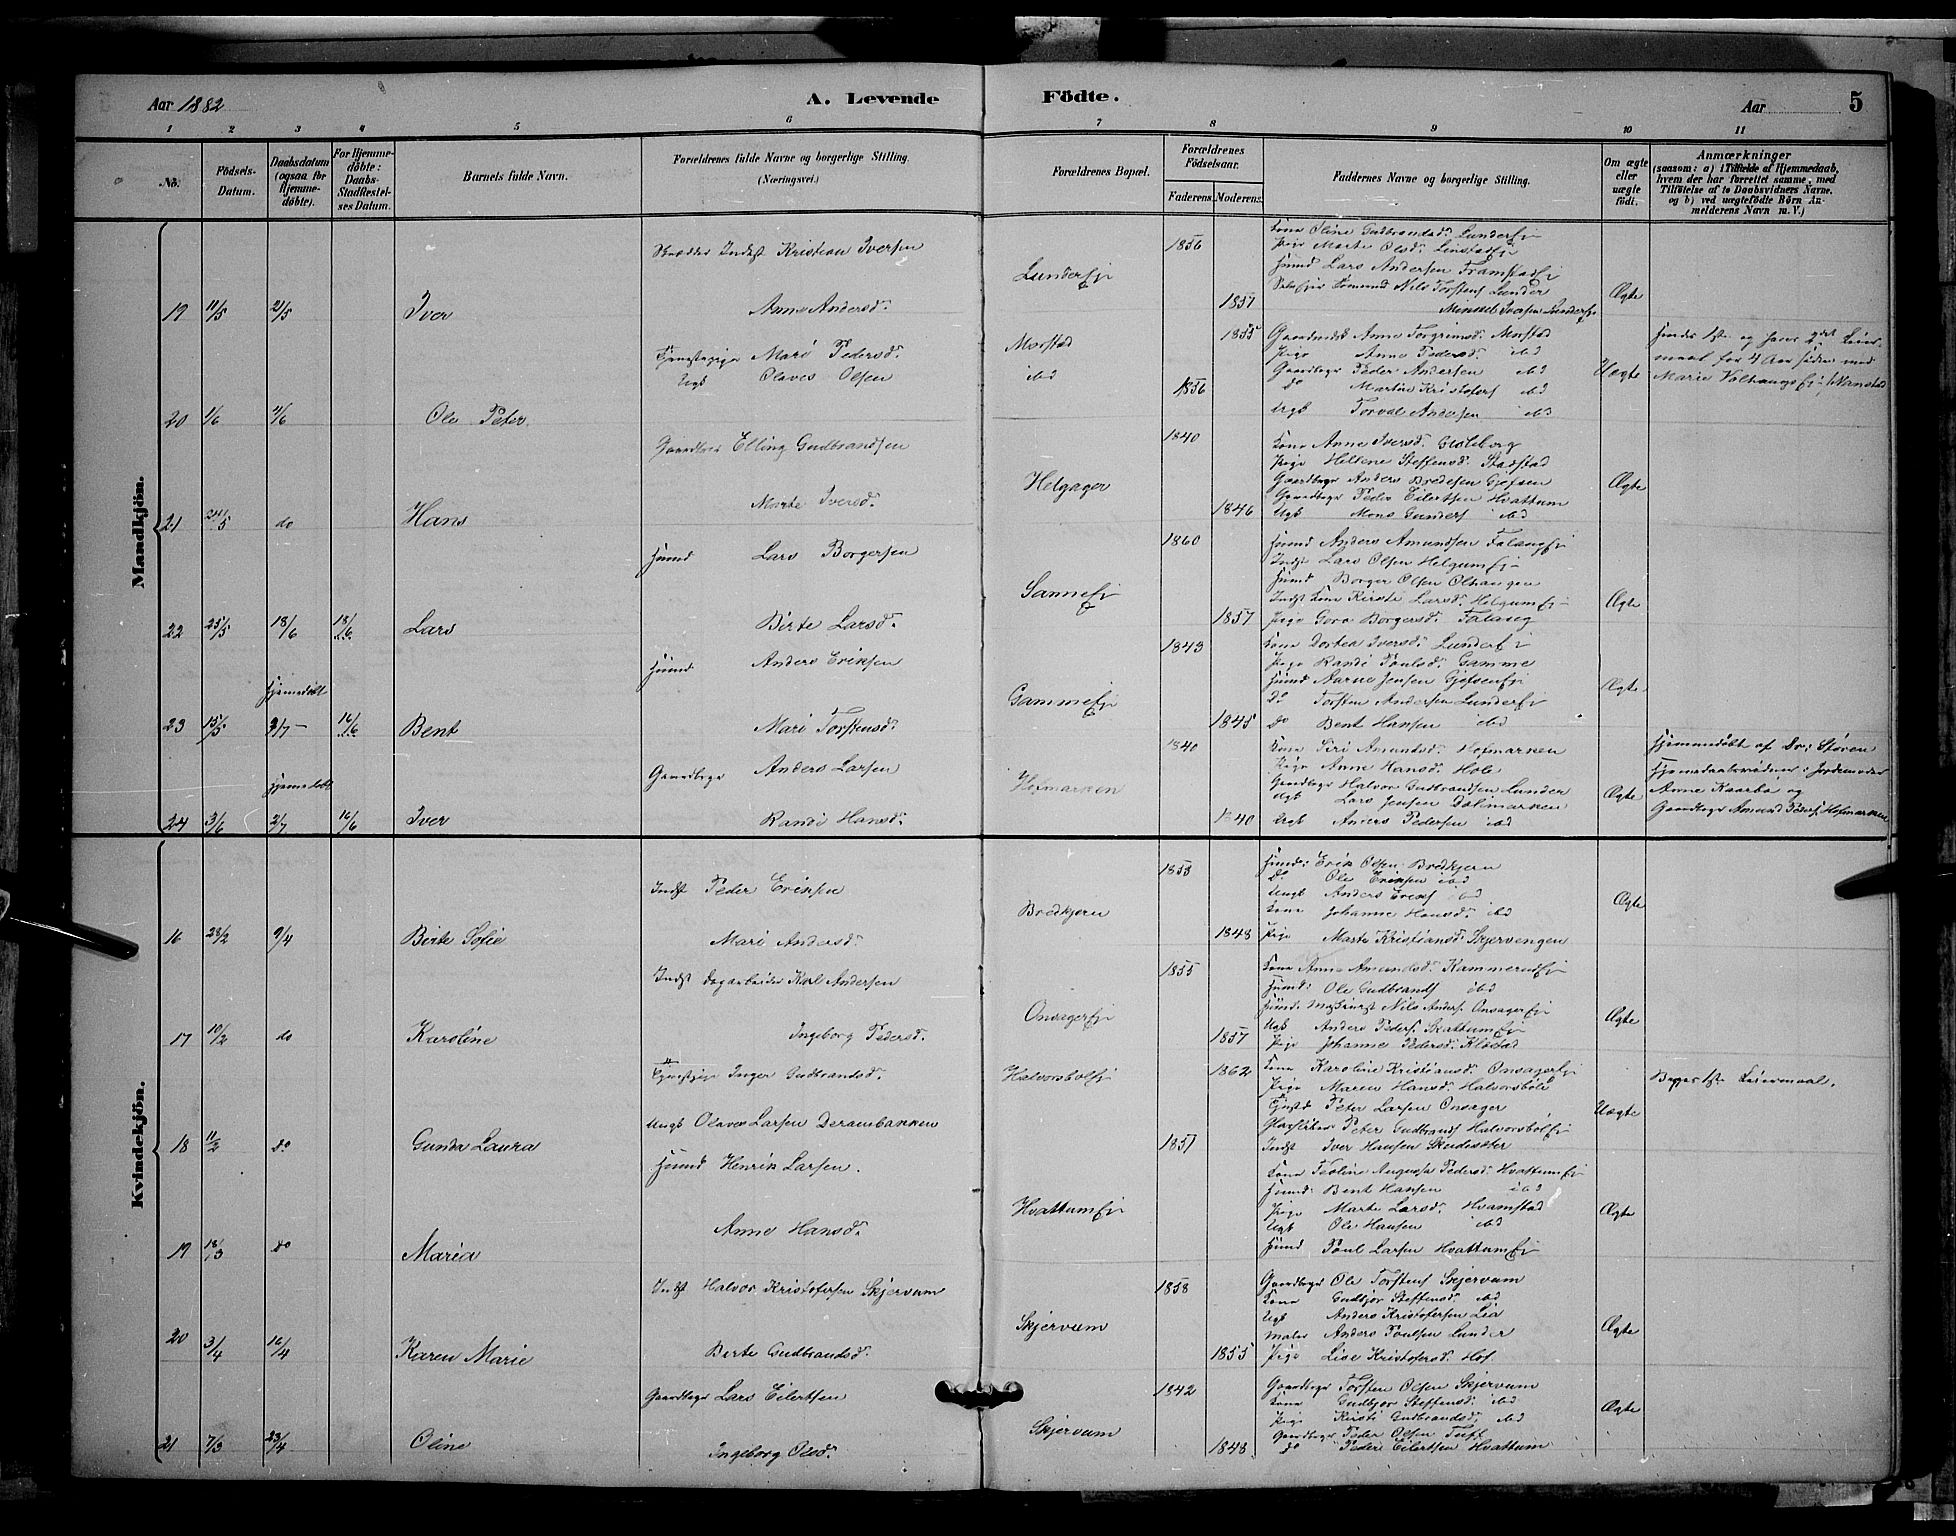 Aar 1882
A. Levende Födte.
Aar 5
1 2 3 4 5 6 7 8 9 10 11
No.
Födsels-Datum.
Daabsdatum (ogsaa for Hjemme-döbte).
For Hjemme-döbte: Daabs-Stadfæstel-ses Datum.
Barnets fulde Navn.
Forældrenes fulde Navne og borgerlige Stilling. (Næringsvei.)
Forældrenes Bopæl.
Forældrenes Födselsaar.
Faderens. Moderens.
Faddernes Navne og borgerlige Stilling.
Om ægte eller uægte födt.
Anmærkninger
(saasom: a) i Tilfælde af Hjemmedaab,
hvem der har forrettet samme, med
Tilföielse af to Daabsvidners Navne.
og b) ved uægtefödte Börn An-
melderens Navn m. V.)
Mandkjön.
19 11/5 21/5 Iver
Indst Kristian Iversen
Anne Andersd.
Lunderej
1856
1857
Kone Oline Gudbrandsd. Lunderej
Pige Marte Olsd.
Huusmd Lars Andersen Framstadej
Nils Torstens Lunder
Mikkel Iversen Lunderej
Ægte
20 1/6 11/6 Ole Peter
Tjenestepige Mari Pedersd.
Ugk Olaves Olsen
Morstad
ibd
1855
1856
Anne Torgrimsd. Morstad
Pige Anne Pedersd. ibd
Gaardbrgr Peder Andersen ibd
do Martin Kristofers ibd
Ugk Torval Andersen ibd
Uægte
Hendes 1ste og hans 2det Leier-
maal for 4 Aar siden med
21 24/5 do Hans
Elling Gudbrandsen
Marte Iversd.
Helgager
1840
1846
Kone Anne Iversd. Goleborg
Pige Hellene Steffensd. Stadstad
Gaardbrgr Anders Bredesen Gjefsen
Gaardbrgr Peder Eilertsen Hvattum
Ugk Mons Gunders ibd
Ægte
22 25/5 18/6 18/6 Lars
Huusmd Lars Borgersen
Birte Larsd.
Sanneej
1860
1857
Huusmd Anders Amundsen Falangej
Indst Lars Olsen Helgumej
Huusmd Borger Olsen
Indst Kone Kirsti Larsd. Helgumej
Pige Goro Borgersd. Falang
Ægte
23 15/5 Hjemmedöbt 2/7 16/6 Bent
Huusmd Anders Eriksen
Mari Torstensd.
Gammeej
1843
1845
Kone Dortea Iversd. Lunderej
Pige Randi Poulsd. Gamme
Huusmd Aarne Jensen Gjefsenej
Do Torsten Andersen Lunderej
do Bent Hansen ibd
Ægte
24 3/6 Hjemmedöbt 2/7 16/6 Iver
Gaardbrgr Anders Larsen
Randi Hansd.
Hofmarken
1840
1840
Kone Siri Amundsd. Hofmarken
Pige Anne Hansd. Hole
Gaardbrgr Halvor Gudbrandsen Lunder
Ugk Lars Jensen Dalmarken
Ugk Anders Pedersen ibd
Ægte
Hjemmedöbt af Dr. Støren
Hjemmedaabsvidner: Jordemoder
Anne Kaarba og
Gaardbrgr Amund Peders. Hofmarken
Kvindekjön.
16 28/2 9/4 Birte Sofie
Indst Peder Eriksen
Mari Andersd.
Bredkjern
1853
1848
Huusmd: Erik Olsen Bredkjern
do Ole Eriksen ibd
Ungk Anders Eriks ibd
Kone Johanne Hansd. ibd
Pige Marte Kristiansd. Skjervengen
Ægte
17 10/2 do Karoline
Indst Dagarbeider Karl Andersen
Ingeborg Pedersd.
Onsagerej
1855
1857
Kone Anne Amundsd. Kammerudej
Huusmd: Ole Gudbrands ibd
Nils Anders. Onsagerej
Ugk Anders Peders. Skattumej
Pige Johanne Pedersd. Klæstad
Ægte
18 11/2 do Gunda Laura
Tjenestpige Inger Gudbrandsd.
Ungk Olaves Larsen Derambakken
Halvorsbølej
1862
1857
Kone Karoline Kristiansd. Onsagerej
Pige Maren Hansd. Halvorsböle
Peter Larsen Onsager
Peter Gudbrands Halvorsbølej
Indst Iver Hansen
Uægte
Begges 1ste Leiermaal.
19 18/3 do Maria
Huusmd Henrik Larsen.
Anne Hansd.
Hvattumej
Kone Teoline Augusta Pedersd. Hvattumej
Huusmd: Bent Hansen ibd
Pige Marte Larsd. Hvamstad
Ugk Ole Hansen ibd
Huusmd Poul Larsen Hvattumej
Ægte
20 3/4 16/4 Karen Marie
Indst Halvor Kristofersen Skjervum
Berte Gudbrandsd.
Skjervum
1858
1855
Gaardbrgr Ole Torstens Skjervum
Kone Gudbjor Steffensd. ibd
Ugk Anders Kristofersen Lia
Maler Anders Poulsen Lunder
Pige Lise Kristofersd. Hof.
Ægte
21 7/3 23/4 Oline
Gaardbrgr Lars Eilertsen
Ingeborg Olsd.
Skjervum
1842
1848
Gaardbrgr Torsten Olsen Skjervum
Kone Gudbjor Steffensd. ibd
Pige Kristi Gudbrandsd. ibd
Gaardbrgr Peder Olsen Tuft
do Peder Eilertsen Hvattum
Ægte